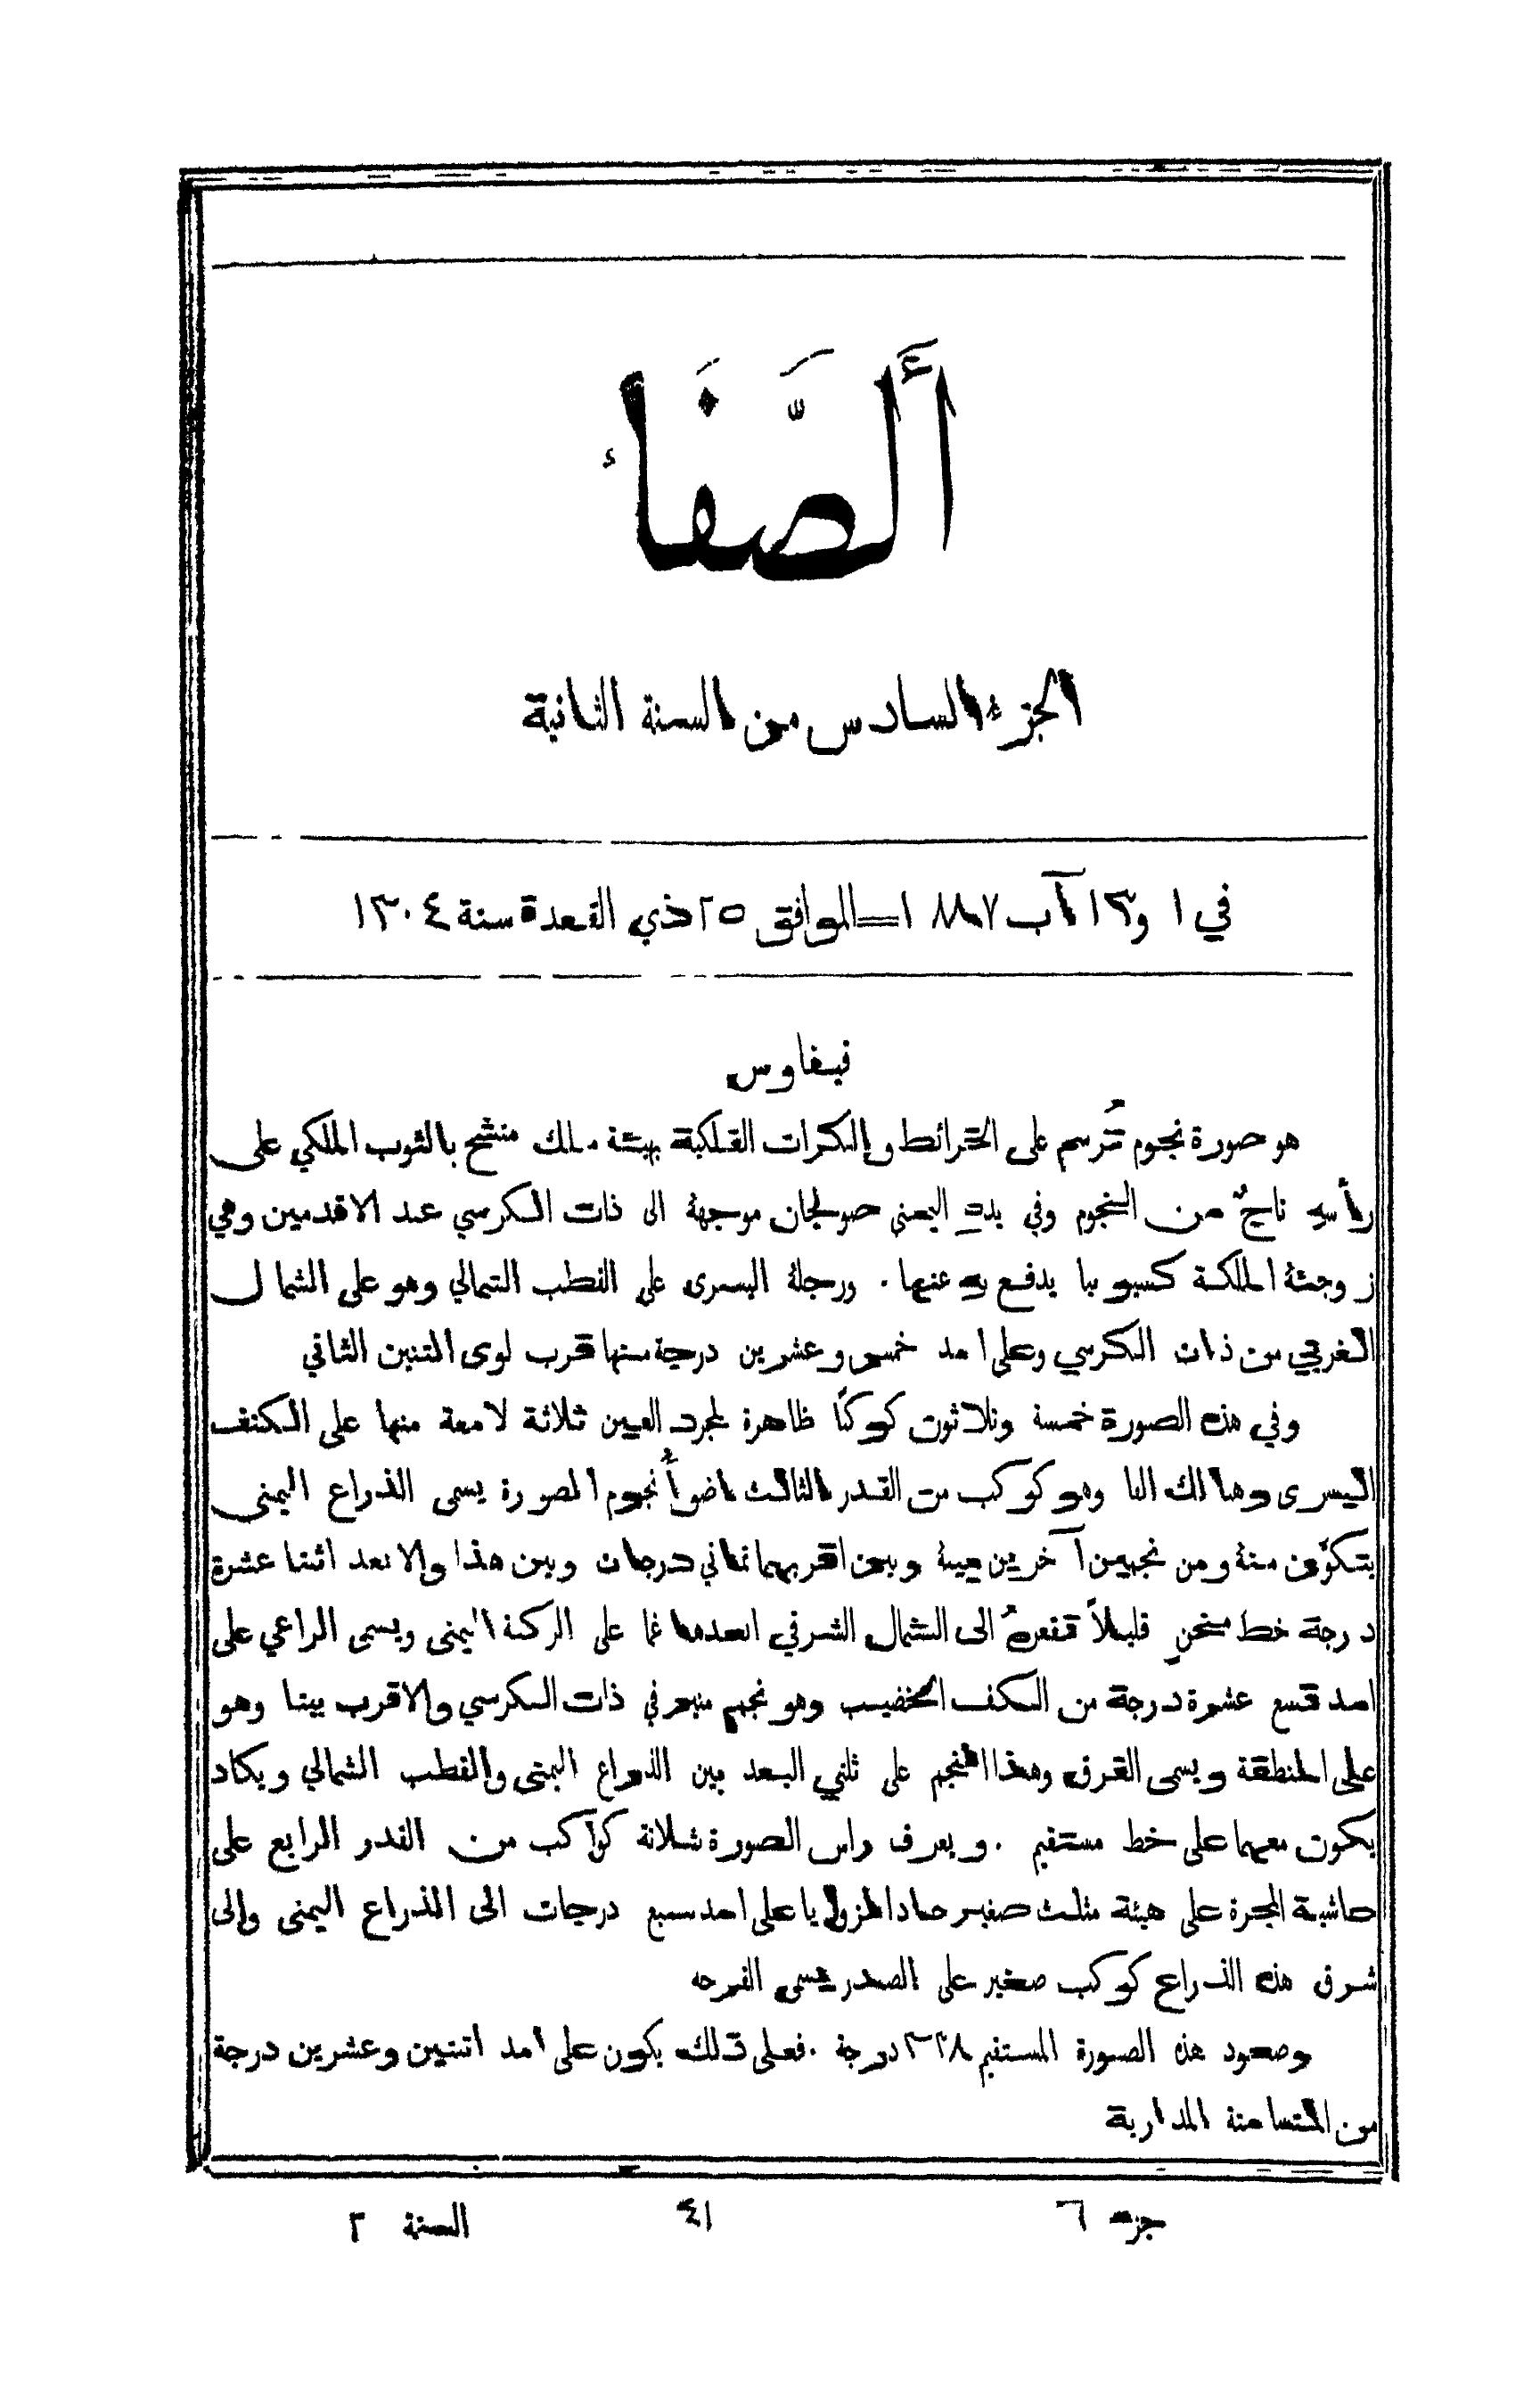 أَلصَّفَاءُ
الجزء السادس من السنة الثانية
في ١ و١٣ آب ١٨٨٧ = الموافق ٢٥ ذي القعدة سنة ١٣٠٤
فيفاوس
هو صورة نجوم تُرسم على الخرائط والكرات الفلكية بهيئة ملك متشح بالثوب الملكي على
رأسهِ تاجٌ من النجوم وفي يده اليمنى صولجان موجهة الى ذات الكرسي عند الاقدمين وهي
زوجتهُ الملكة كسيوبيا يدفع به عنها . ورجلهُ اليسرى على القطب الشمالي وهو على الشمال
الغربي من ذات الكرسي وعلى امد خمس وعشرين درجة منها قرب لوى التنين الثاني
وفي هذه الصورة خمسة وثلاثون كوكبًا ظاهرة لمجرد العين ثلاثة لامعة منها على الكتف
اليسرى وهو كوكب من القدر الثالث اضوأُ نجوم الصورة يسمى الذراع اليمنى
يتكوَّن منهُ ومن نجمين آخرين وبين اقربهما ثماني درجات وبين هذا والابعد اثنتا عشرة
درجة خط منحنٍ قليلاً الى الشمال الشرقي ابعدهما على الركبة اليمنى ويسمى الراعي على
امد تسع عشرة درجة من الكف الخضيب وهو نجم في ذات الكرسي والاقرب بينا وهو
على المنطقة ويسمى القرق وهذا النجم على ثلثي البعد بين الذراع اليمنى والقطب الشمالي ويكاد
يكون معهما على خط مستقيم . ويعرف راس الصورة بثلاثة كواكب من القدر الرابع على
حاشية المجرة على هيئة مثلث صغير حاد الزوايا على امد سبع درجات الى الذراع اليمنى والى
شرق هذه الذراع كوكب صغير على الصدر يسمى القرحه
وصعود هذه الصورة المستقيم ٣٣٨ درجة . فعلى ذلك يكون على امد اثنتين وعشرين درجة
من المتسامتة المدارية
جزء ٦ ٤١ السنة ٢